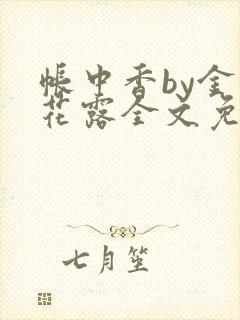 帐中香by金
花露全文免
七月笙